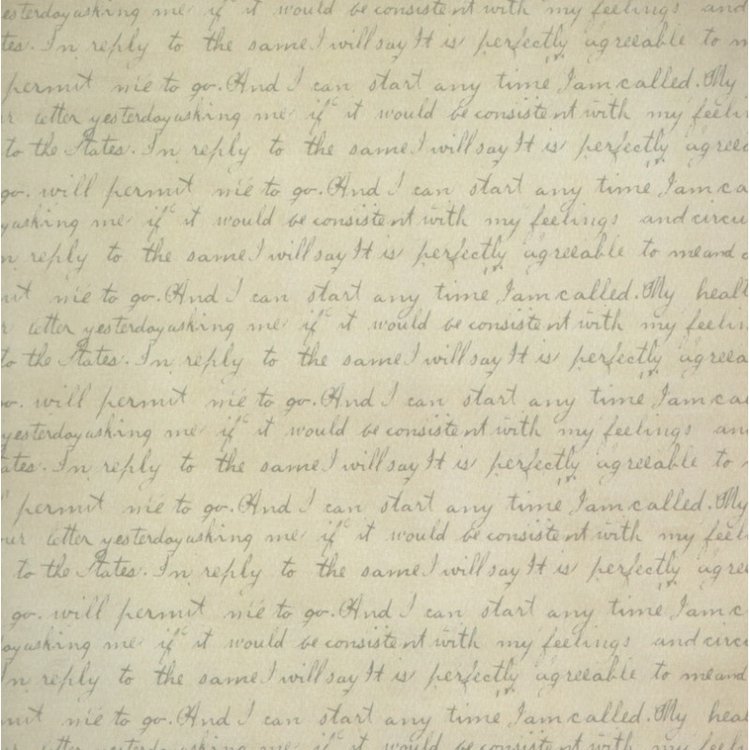 esterday asking me if it would be consistent with my feelings and
tes. In reply to the same I will say It is perfectly agreeable to m
permit me to go. And I can start any time I am called. My
r letter yesterday asking me if it would be consistent with my feeli
to the States. In reply to the same I will say It is perfectly agree
go. will permit me to go. And I can start any time I am ca
y asking me if it would be consistent with my feelings and circu
n reply to the same I will say It is perfectly agreeable to me and c
mit me to go. And I can start any time I am called. My healt
r letter yesterday asking me if it would be consistent with my feelin
to the States. In reply to the same I will say It is perfectly agreea
go. will permit me to go. And I can start any time I am ca
yesterday asking me if it would be consistent with my feelings an
ates. In reply to the same I will say It is perfectly agreeable to
l permit me to go. And I can start any time I am called. My
ur letter yesterday asking me if it would be consistent with my feel
to the States. In reply to the same I will say It is perfectly agree
go. will permit me to go. And I can start any time I am c
ay asking me if it would be consistent with my feelings and circu
In reply to the same I will say It is perfectly agreeable to me and
mit me to go. And I can start any time I am called. My heal
r letter yesterday asking me if it would be consistent with my feel